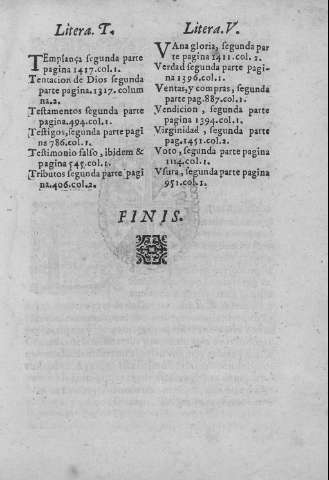 Litera. T.
TEmplança segunda parte
pagina 1417.col.1.
Tentacion de Dios segunda
parte pagina.1317. colum
na.2.
Testamentos segunda parte
pagina.494.col.1.
Testigos, segunda parte pagi
na 786.col.1.
Testimonio falso, ibidem &
pagina 545.col.1.
Tributos segunda parte pagi
na.406.col.2.
Litera. V.
VAna gloria, segunda par
te pagina 1411.col.2.
Verdad segunda parte pagi-
na 1396.col.1.
Ventas, y compras, segunda
parte pag.887.col.1.
Vendicion, segunda parte
pagina 1394.col.1.
Virginidad, segunda parte
pag.1451.col.2.
Voto, segunda parte pagina
1124.col.1.
Vsura, segunda parte pagina
951.col.1.
FINIS.